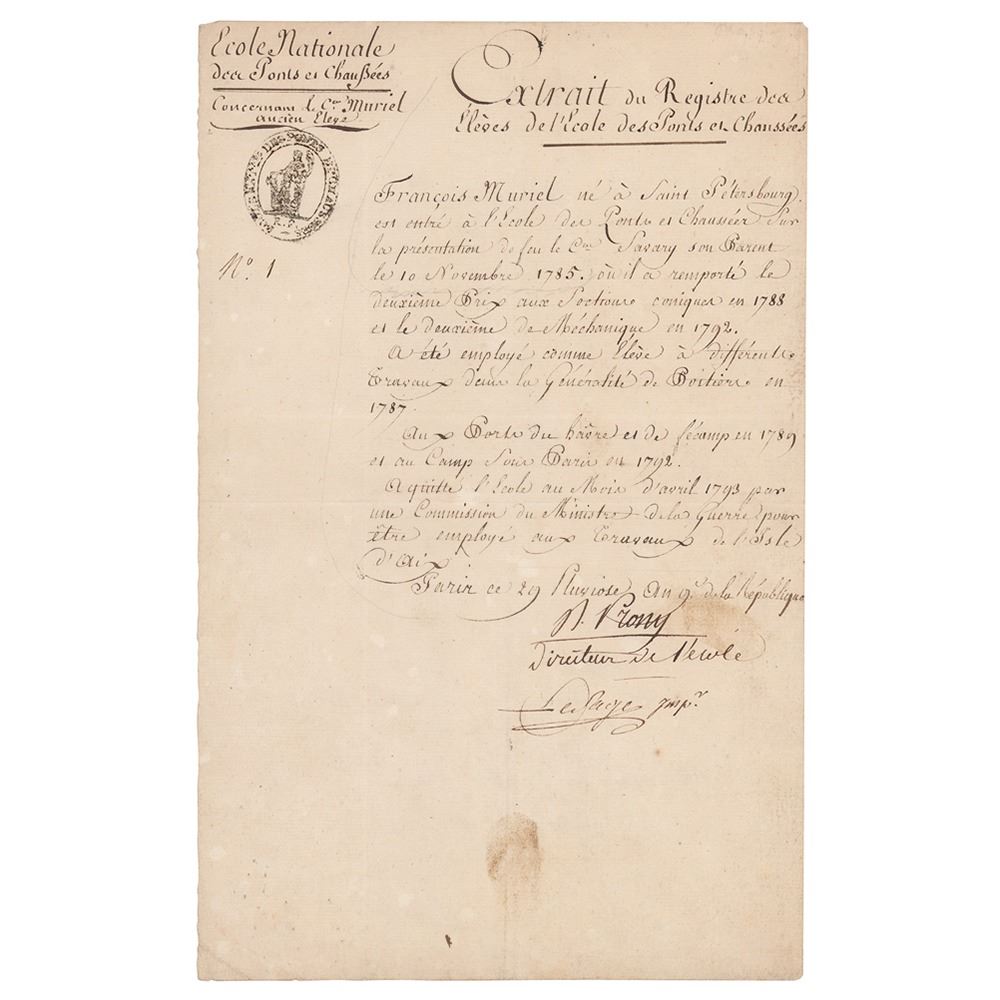 Ecole Nationale
des Ponts et Chaussées
Concernant le Cen Muriel
ancien Elève
Extrait du Registre des
Elèves de l'Ecole des Ponts et Chaussées
François Muriel né à Saint Pétersbourg
est entré à l'Ecole des Ponts et Chaussées sur
la présentation de feu le Cen Savary son Parent
le 10 Novembre 1785. où il a remporté le
deuxième Prix aux Sections coniques en 1788
et le deuxième de Méchanique en 1792.
A été employé comme Elève à différents
Travaux dans la Généralité de Poitiers en
1787.
Aux Ports du hâvre et de fécamp en 1789
et au Camp sous Paris en 1792.
A quitté l'Ecole au Mois d'avril 1793 par
une Commission du Ministre de la Guerre pour
être employé aux Travaux de l'Isle
d'Aix
Paris ce 29 Pluviose An 9e de la République
R. Prony
Directeur de l'école
Le Sage Inspr
No. 1